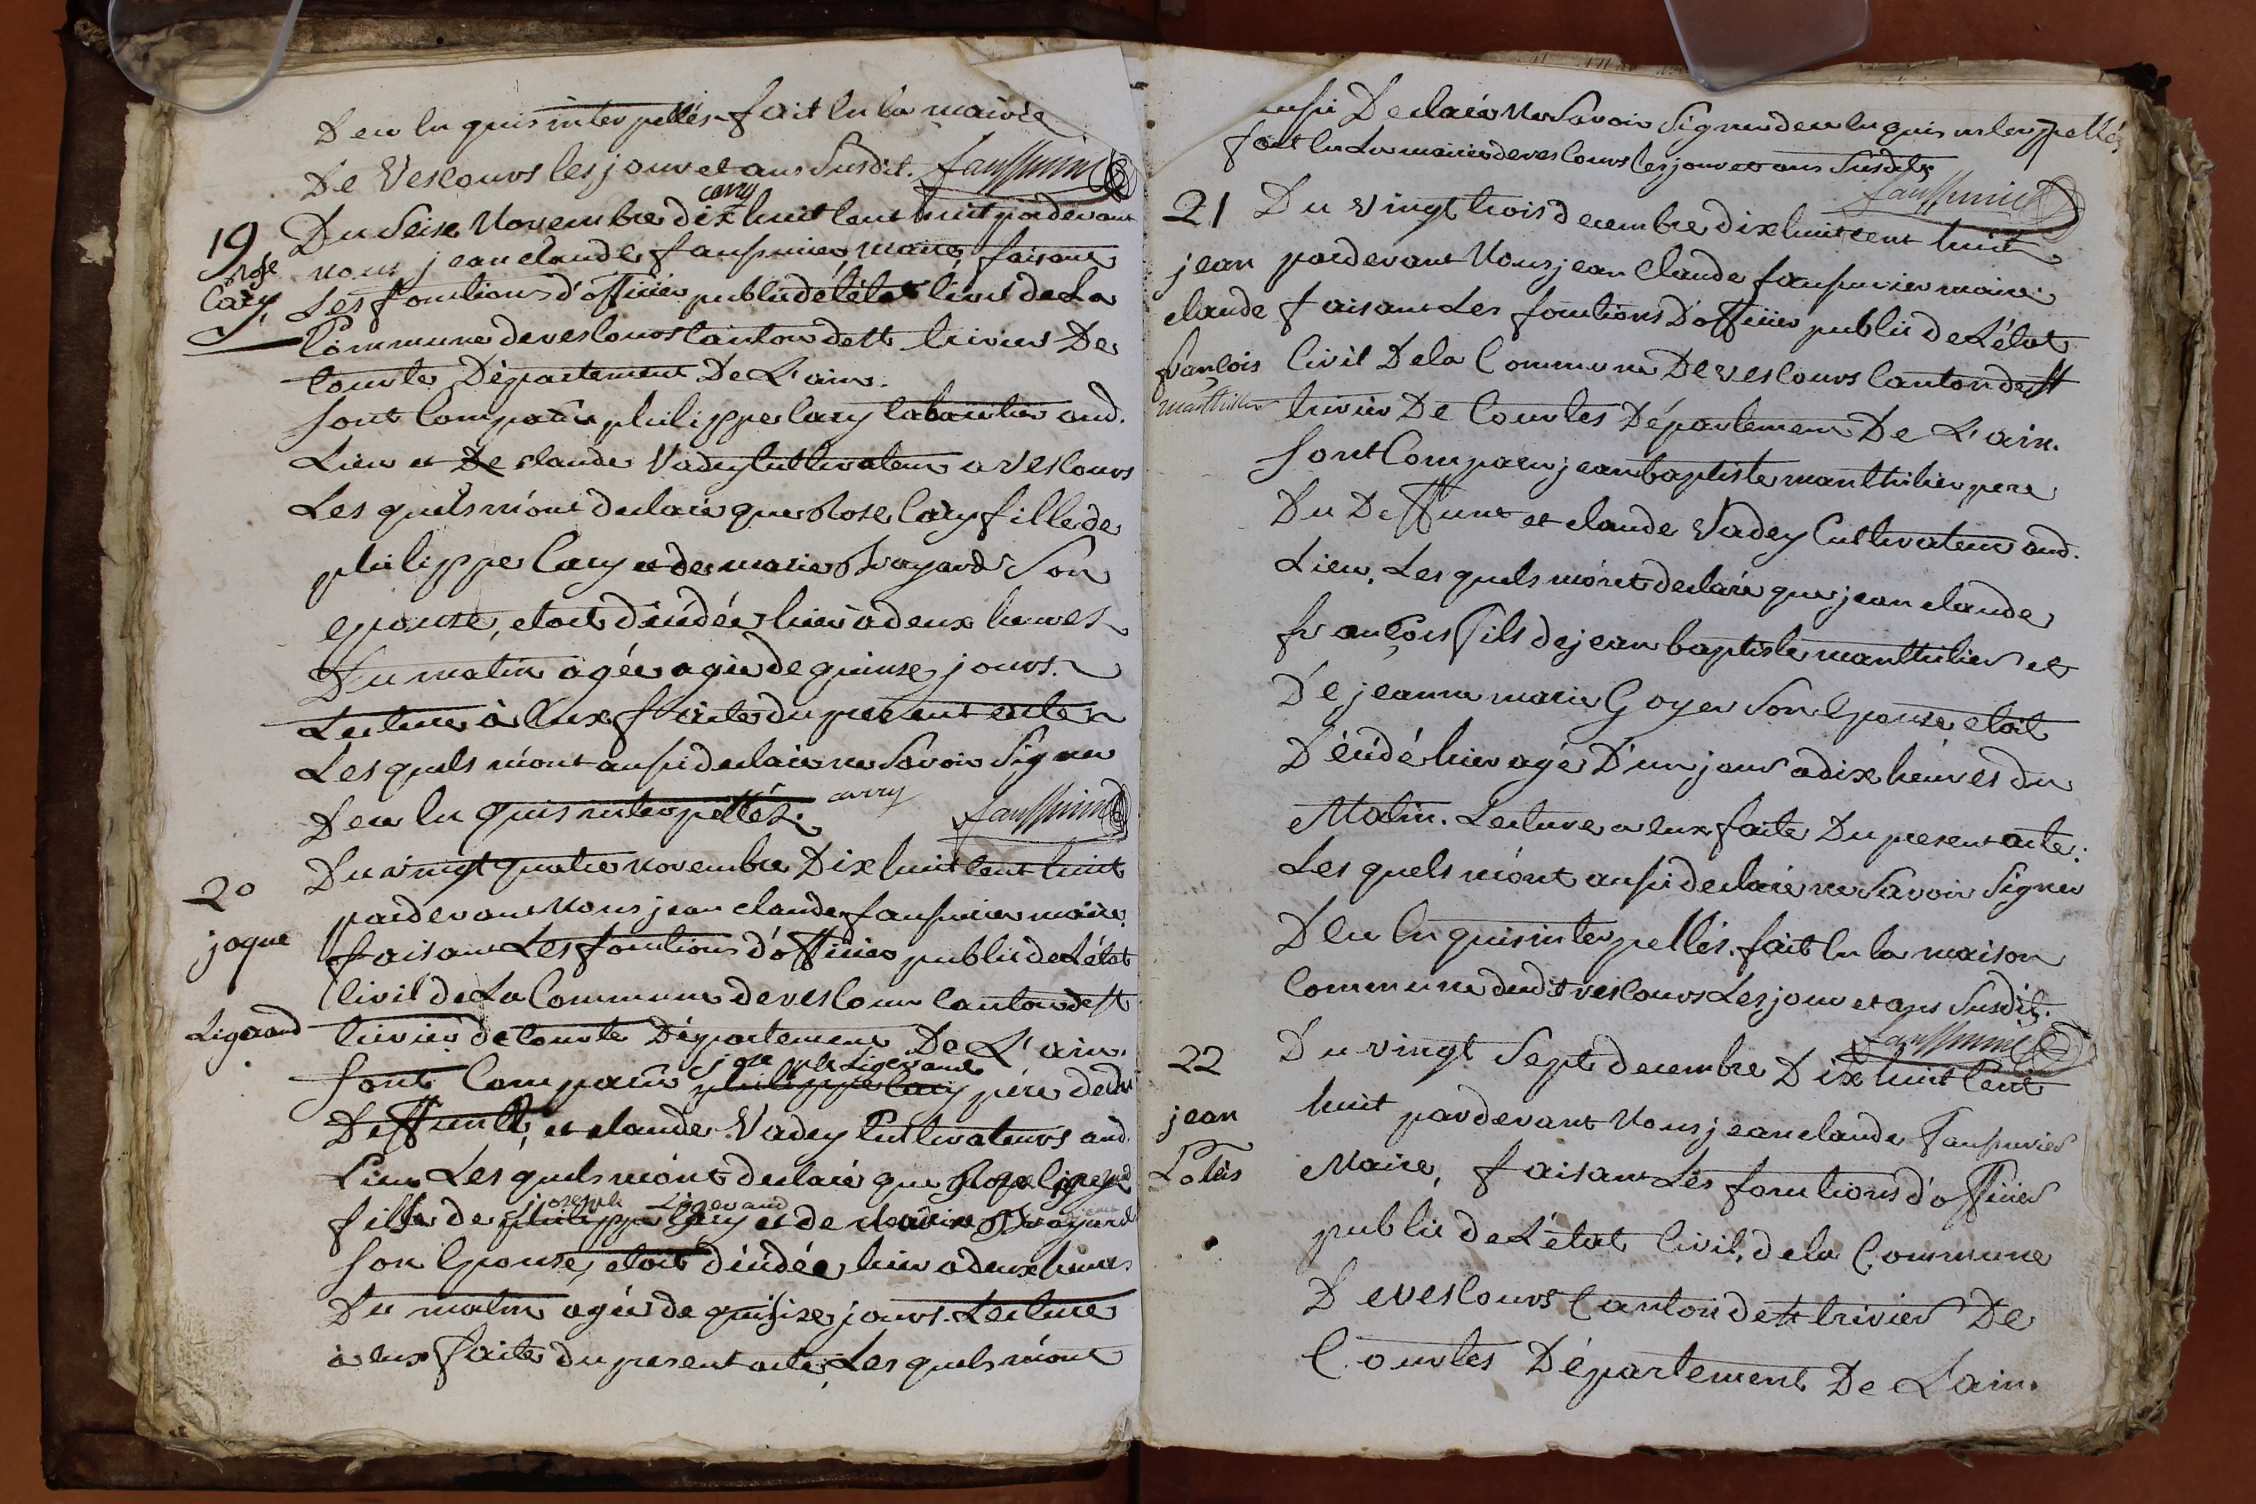 De ce lu quis interpellés fait en la mairie
De Vescours les jour et ans Susdit. faussurier
carry
19 Du Seise Novembre dix huit Cent huit pardevant
rose nous jean claude faussurier, maire, faisant
Cary, Les fonctions d'officier public de l'état Civil de La
Commune de vescours Canton de st trivier De
Courtes, Département De L'ain.
Sont Comparu philippe Cary laboureur aud.
Lieu et De claude Vadey Cultivateur a vescours
Les quels m'ont declaré que Rose Cary fille de
philippe Cary et de marie Son
epouse, etoit décédée hier a deux heures
Du matin agée agée de quinse jours.
Lecture à Eux faite du present acte
Les quels m'ont aussi declaré ne Savoir Signer
De ce lu quis interpellés. carry faussurier
20 Du vingt quatre novembre Dix huit Cent huit
pardevant Nous jean claude faussurier maire
jaque faisant Les fonctions d'officier public de L'état
Civil de La Commune de vescour Canton de st
Ligerand trivier de Courte Département De L'ain.
joseph Ligerand
Sont Comparu philippe Cary père dudit
Deffunct, et claude Vadey Cultivateurs aud.
Lieu Les quels m'ont declaré que
joseph Ligerand
fille de philippe Cary et de
Son Epouse, etoit décédée hier a deux heures
Du matin agée de quinse jours. Lecture
à eux faite du present acte, Les quels m'ont
aussi Declaré Ne Savoir Signer de ce lu quis interpellés
fait en La mairie de vescours les jour et ans Susdits
faussurier
21 Du vingt trois decembre dix huit cent huit
jean pardevant Nous jean Claude faussurier maire
claude faisant Les fonctions D'officier public de L'état
françois Civil De la Commune De vescours Canton de st
manthilier trivier De Courtes Département De L'ain.
Sont Comparu jean baptiste manthilier pere
Du Deffunt et claude Vadey Cultivateur aud.
Lieu, Les quels m'ont declaré que jean claude
françois fils de jean baptiste manthilier et
De jeanne marie Goyer Son Epouse, etoit
Décédé hier agé D'un jour a dix heures du
Matin. Lecture a eux faite Du present acte.
Les quels m'ont aussi declaré ne Savoir Signer
De ce lu quis interpellés. fait en la maison
Commune dudit vescours Les jour et ans Susdit.
faussurier
22 Du vingt Sept decembre Dix huit Cent
jean huit pardevant Nous jean claude faussurier
Maire, faisant Les fonctions d'officier
public de L'état Civil, de la Commune
De vescours Canton de st trivier De
Courtes Département De L'ain.